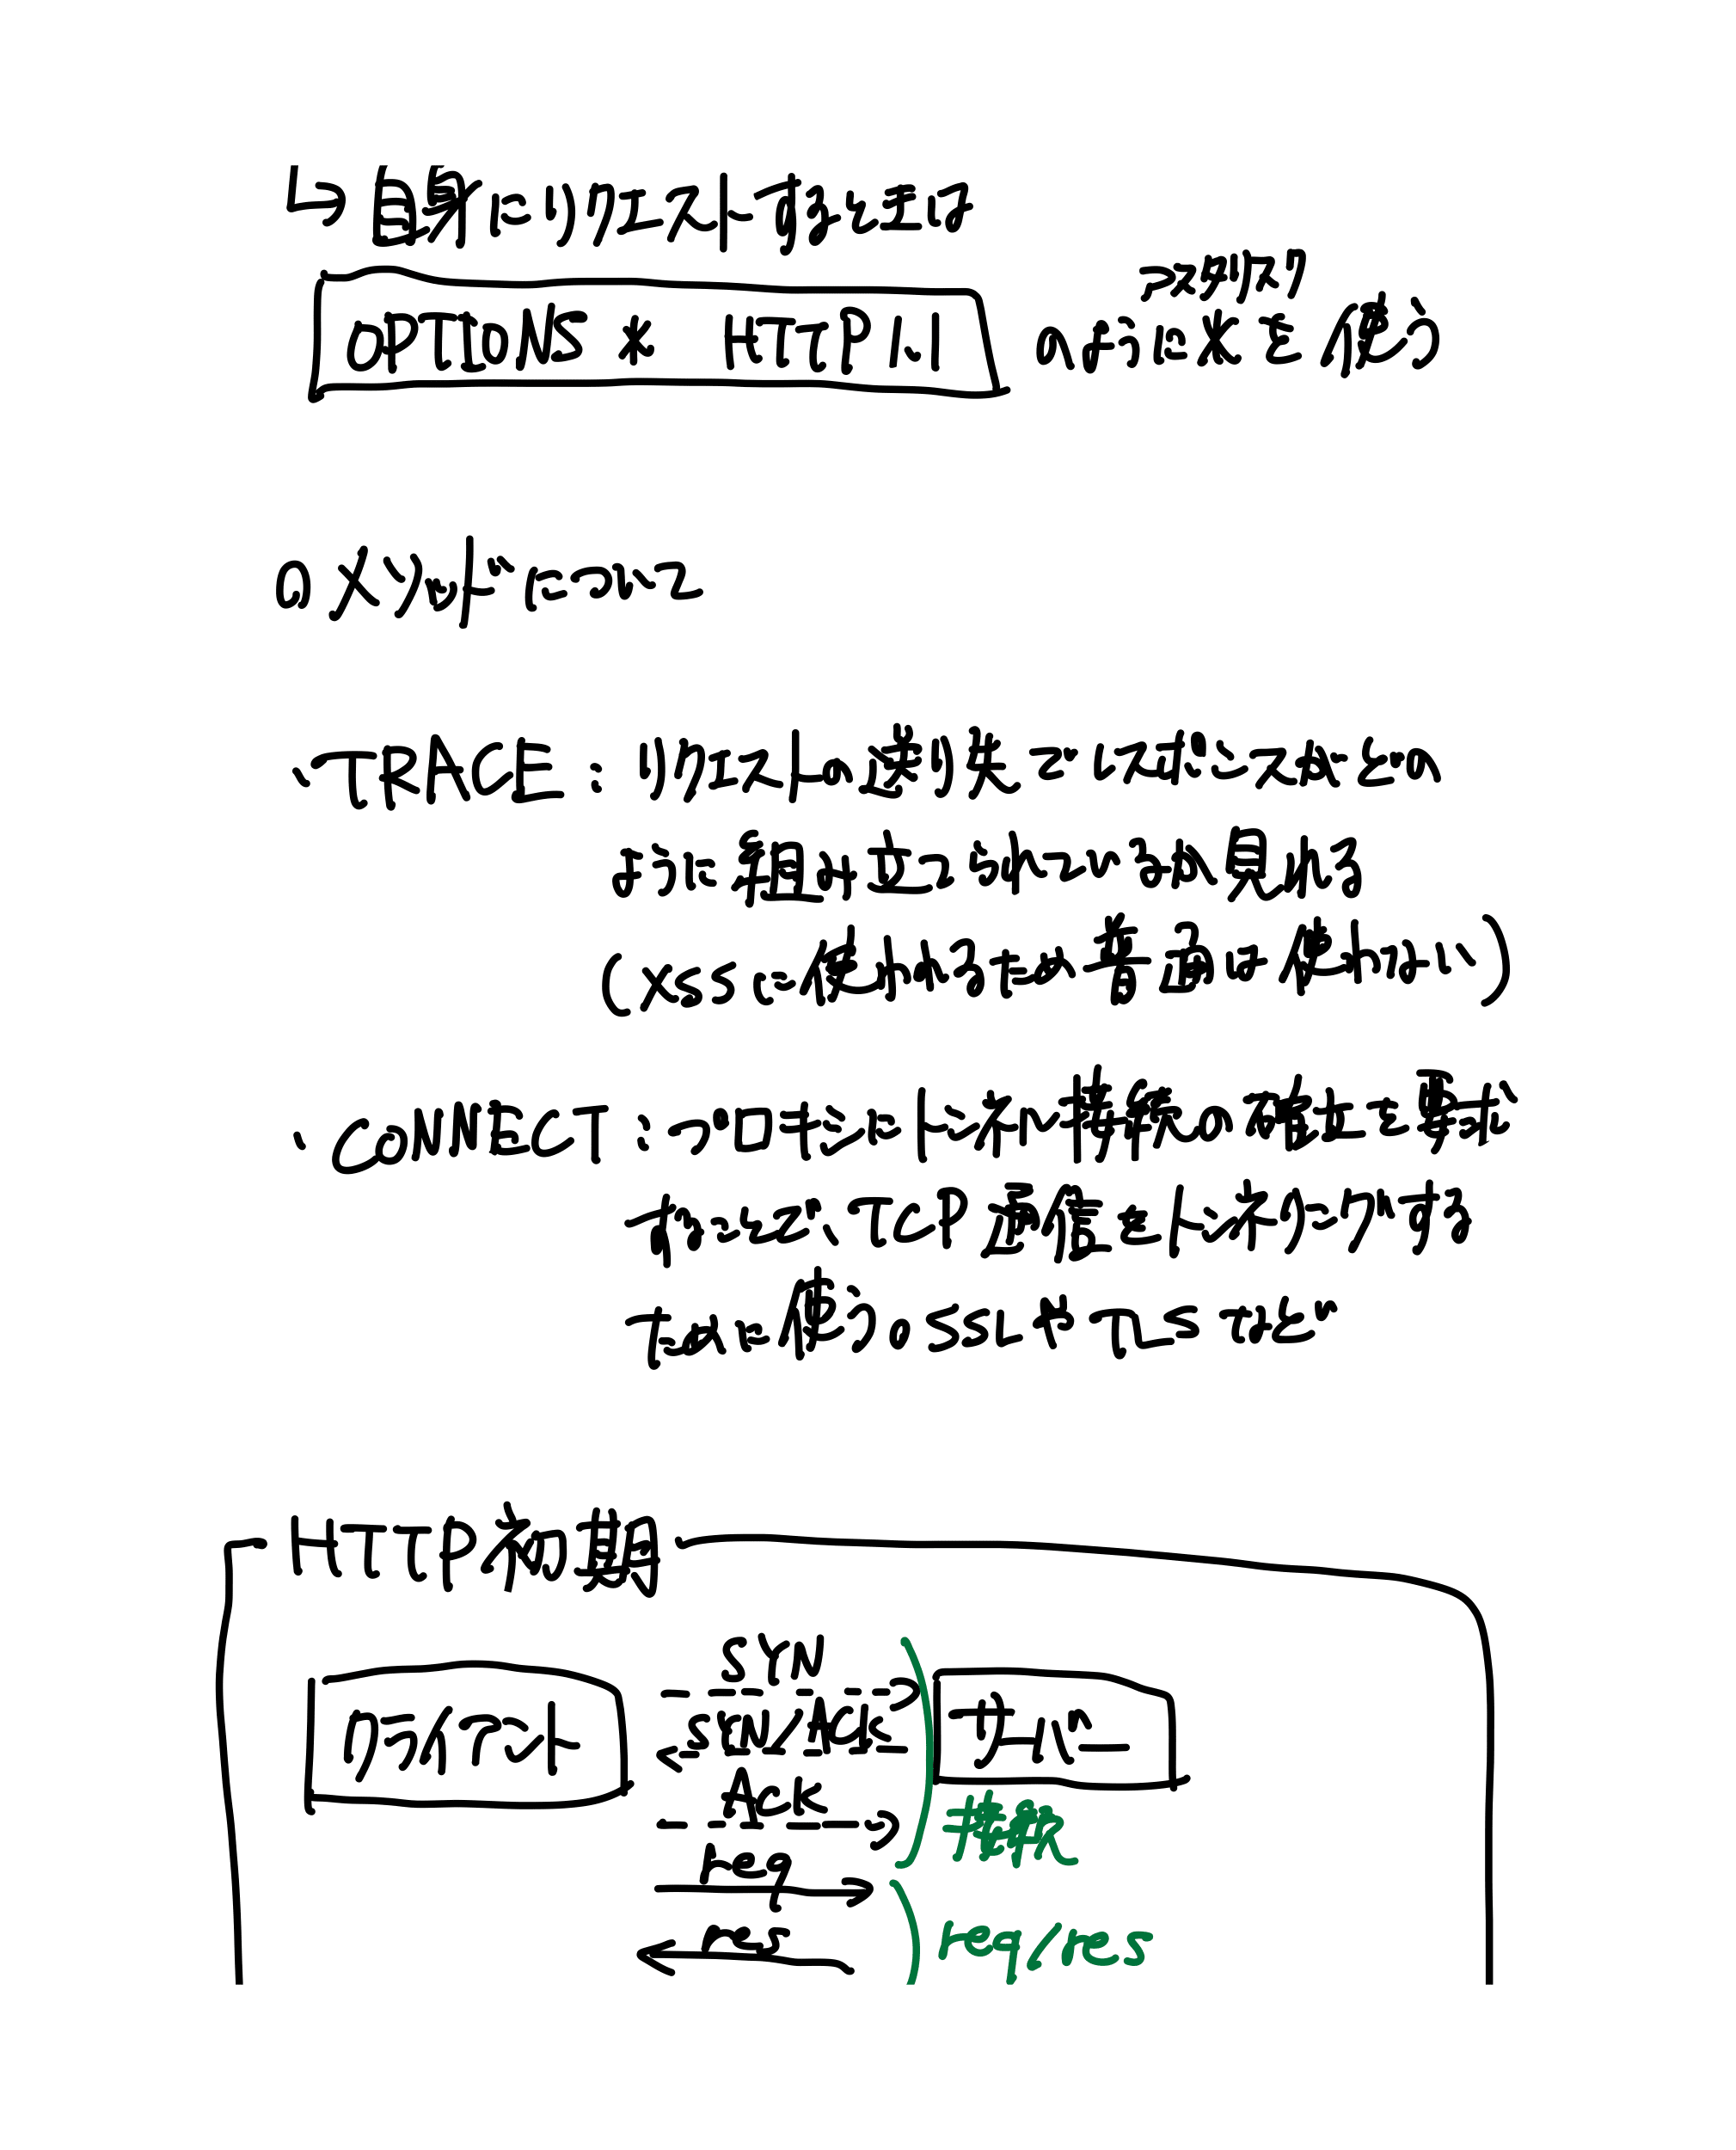 ↳自身にリクエストするときは
アスタリスク
OPTIONS * HTTP 1.1 のように*を使う
○メソッドについて
・TRACE：リクエストの送り先でレスポンスがどの
ように組み立つられているか見れる
(XSSに使われるため普通は使わない)
・CONNECT：プロキシにトンネル接続の確立を要求
することで、TCP通信をトンネリングする
ために使う。SSLやTLSなど
HTTP初期
SYN
クライアント
SYN/ACK
サーバー
ACK
接続
req
res
req/res